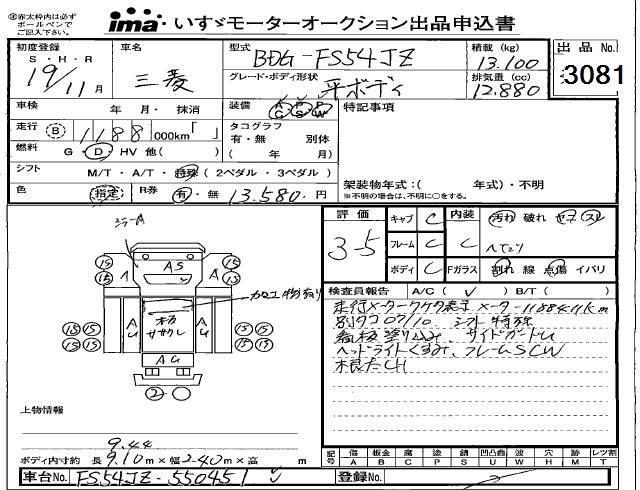 ㊟赤太枠内は必ず
ボールペンで
ご記入下さい。
ima いすゞモーターオークション出品申込書
初度登録 車名 型式 BDG-FS54JZ 積載 (kg) 出品No.
S・H・R 三菱 13.100 3081
19/11月 グレード・ボディ形状 平ボディ 排気量 (cc) 12.880
車検 年 月・ 抹消 装備 A C P S P W 特記事項
走行 B 1188 000km「 」 タコグラフ
有・無 別体
燃料 G・D・HV 他( ) ( 年 月)
シフト M/T・A/T・特殊 (2ペダル・3ペダル) 架装物年式:( 年式)・不明
※不明の場合は、不明に○をする。
色 (指定) R券 有・無 13.580.円
評価 キャブ C 内装 汚れ 破れ コゲ スレ
3-5 フレーム C C ヘたり
ボディ C Fガラス 割れ 線 点傷 イバリ
検査員報告 A/C( ✓ ) B/T( )
走行メーター7ケタ表示 メーター1188411km
別タコ07/10 シフト特殊
看板塗り込み、サイドガードU
ヘッドライトくすみ、フレームSCW
根太CH
ミラーA
AS
15 15 A A 15 15
加工物有り
床板
ササクレ
AU AU
15 15 15 15
AU
2
上物情報
9.44
ボディ内寸約 長 9.10 m×幅 2.40 m×高 m
記号 傷 A 板金 B 腐 C 塗 P 錆 S 凹凸曲 U 波 W 穴 H 跡 M レツ割 T
車台No. FS54JZ-550451 登録No.